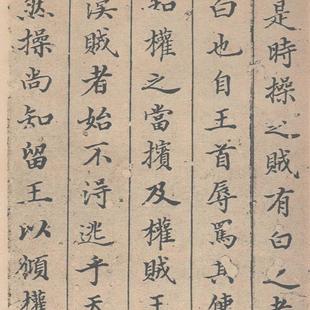 是時操之賊有白之者
白也自王首辱罵其使
知權之當擯及權賊王
漢賊者始不得逃乎天
然操尚知留王以傾權